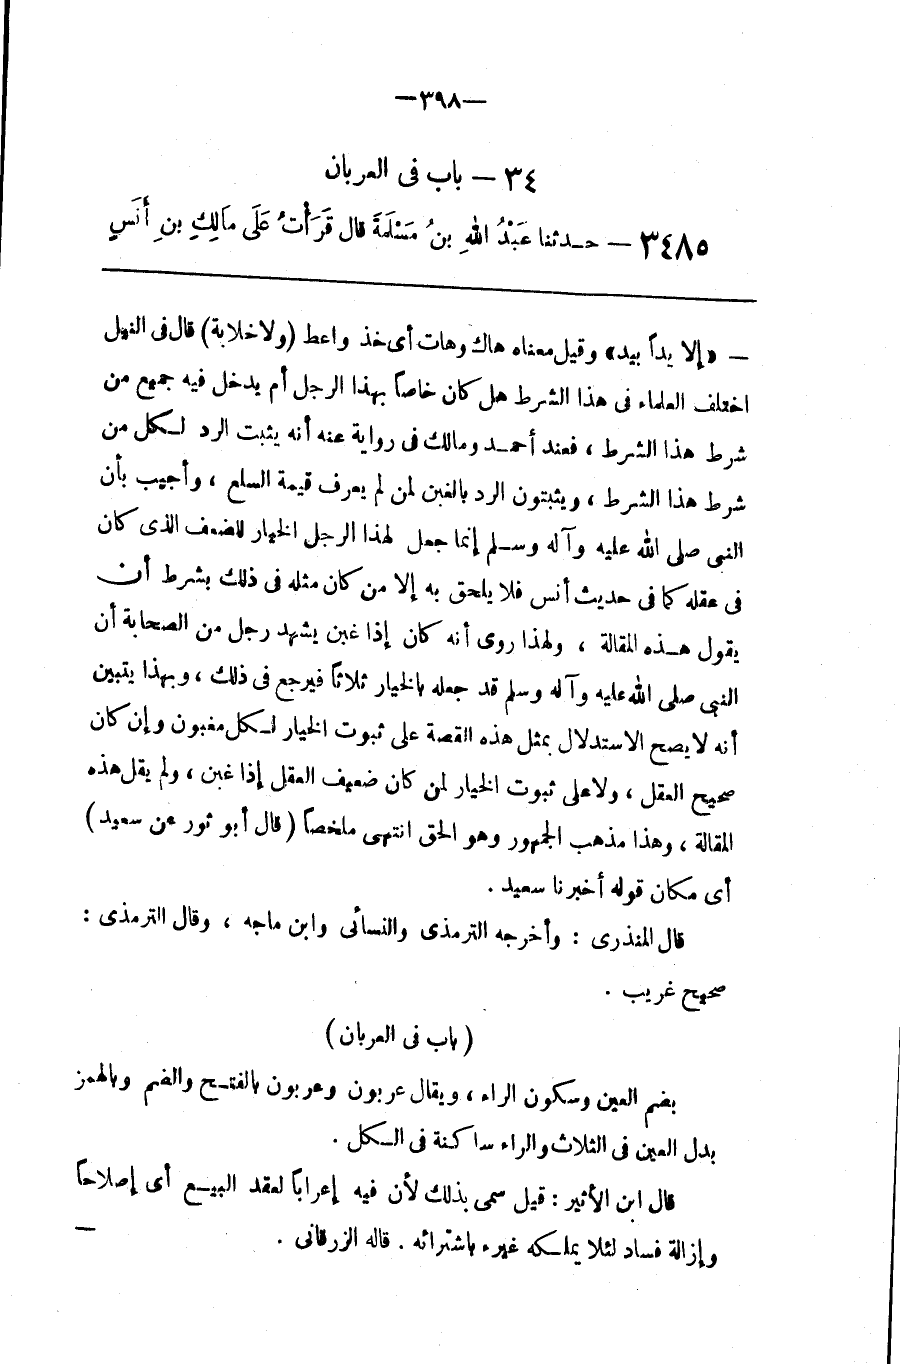 —٣٩٨—
٣٤ — باب فى العربان
٣٤٨٥ — حـدثنا عَبْدُ اللهِ بنُ مَسْلَمَةَ قال قَرَأْتُ عَلَى مَالِكِ بنِ أَنَسٍ
— «إلا يداً بيد» وقيل معناه هاك وهات أى خذ واعط (ولا خلابة) قال فى النيل
اختلف العلماء فى هذا الشرط هل كان خاصاً بهذا الرجل أم يدخل فيه جميع من
شرط هذا الشرط ، فعند أحمـد ومالك فى رواية عنه أنه يثبت الرد لـكل من
شرط هذا الشرط ، ويثبتون الرد بالغبن لمن لم يعرف قيمة السلع ، وأجيب بأن
النبى صلى الله عليه وآله وسـلم إنما جعل لهذا الرجل الخيار للضعف الذى كان
فى عقله كما فى حديث أنس فلا يلحق به إلا من كان مثله فى ذلك بشرط أن
يقول هـذه المقالة ، ولهذا روى أنه كان إذا غبن يشهد رجل من الصحابة أن
النبى صلى الله عليه وآله وسلم قد جعله بالخيار ثلاثاً فيرجع فى ذلك ، وبهذا يتبين
أنه لا يصح الاستدلال بمثل هذه القصة على ثبوت الخيار لـكل مغبون وإن كان
صحيح العقل ، ولا على ثبوت الخيار لمن كان ضعيف العقل إذا غبن ، ولم يقل هذه
المقالة ، وهذا مذهب الجمهور وهو الحق انتهى ملخصاً (قال أبو ثور عن سعيد)
أى مكان قوله أخبرنا سعيد .
قال المنذرى : وأخرجه الترمذى والنسائى وابن ماجه ، وقال الترمذى :
صحيح غريب .
( باب فى العربان )
بضم العين وسكون الراء ، ويقال عربون وعربون بالفتـح والضم وبالهمز
بدل العين فى الثلاث والراء ساكنة فى الـكل .
قال ابن الأثير : قيل سمى بذلك لأن فيه إعراباً لعقد البيـع أى إصلاحاً
وإزالة فساد لئلا يملـكه غيره باشترائه . قاله الزرقانى . —